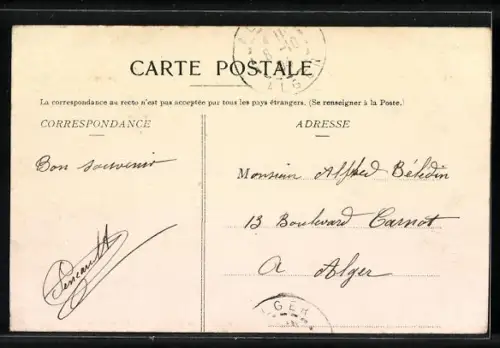 CARTE POSTALE
La correspondance au recto n'est pas acceptée par tous les pays étrangers. (Se renseigner à la Poste.)
CORRESPONDANCE
ADRESSE
Bon souvenir
Monsieur Alfred Bélédin
13 Boulevard Carnot
A Alger